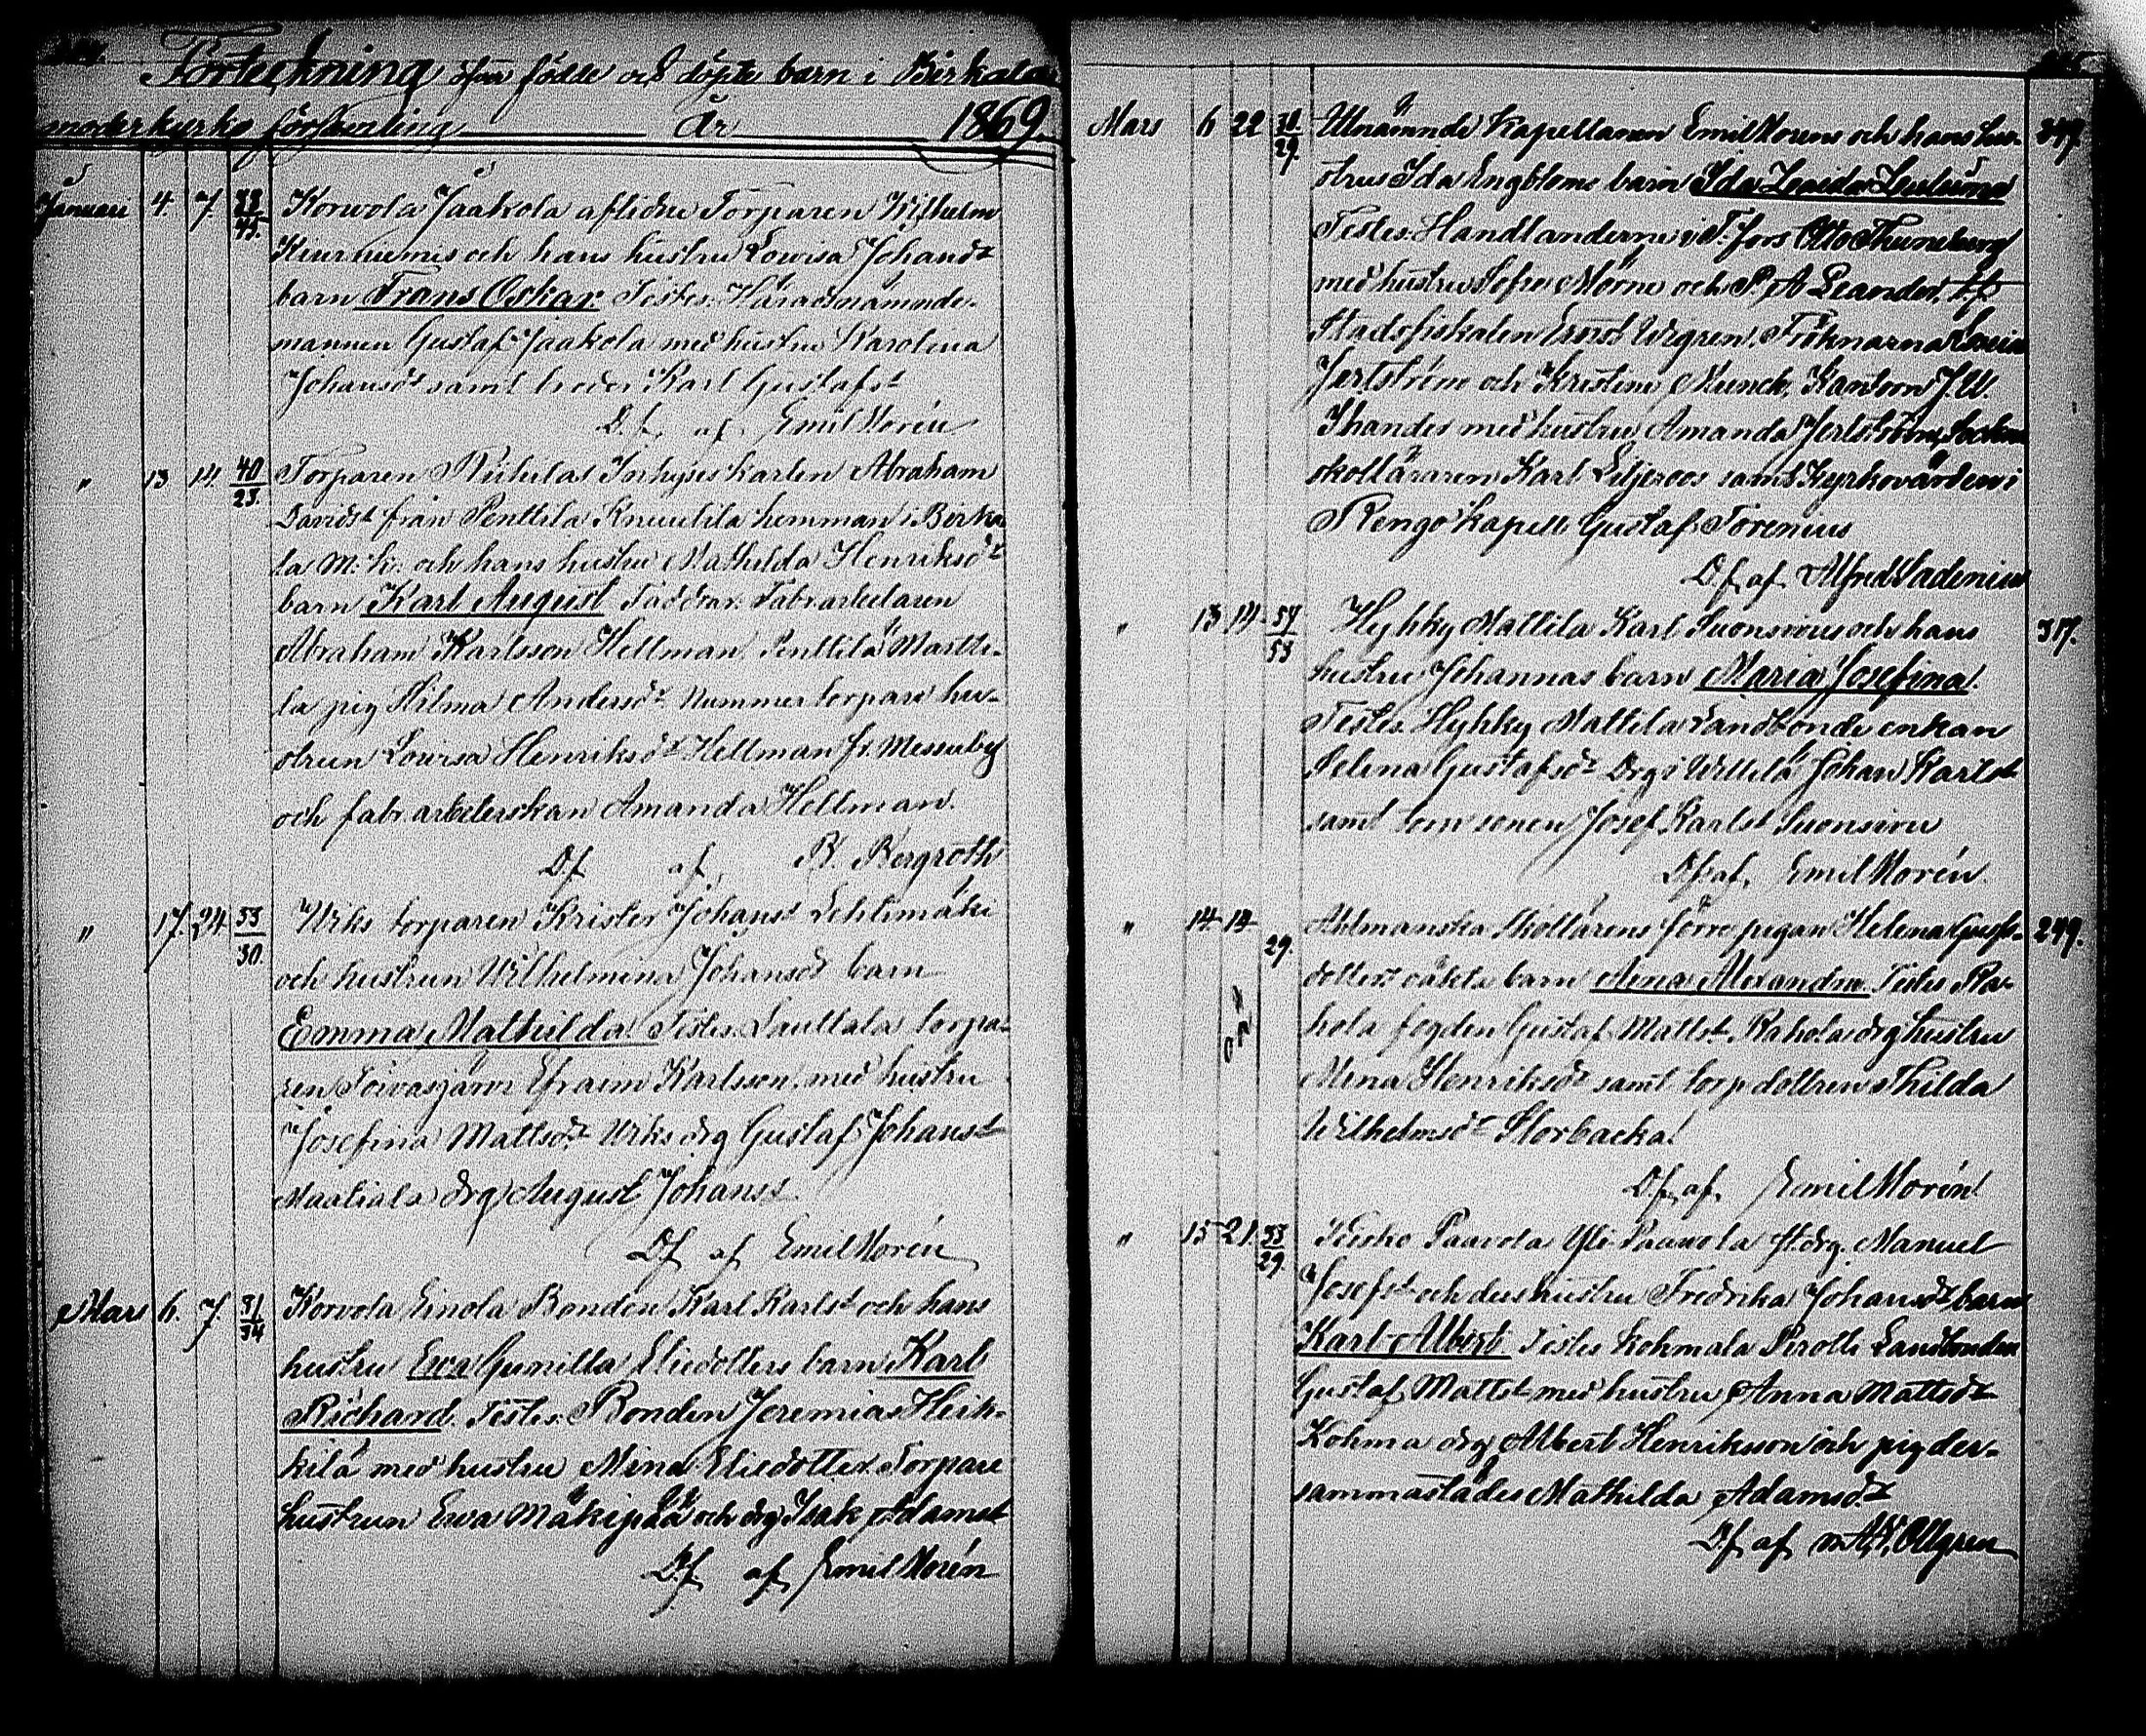 Förteckning öfver födde och döpte barn i Birkala
moderkyrko församling År 1869.
Januari 4. 7. 38/45. Korvola Jaakola aflidne Torparen Wilhelm
Kurniemis och hans hustru Lovisa Johansdr
barn Frans Oskar. Testes: Häradsnämnde-
mannen Gustaf Jaakola med hustru Karolina
Johansdr samt broder Karl Gustafsn
D.f. af Emil Norén
" 13 14 40/23 Torparen Inhyseskarlen Abraham
Davidsn från Penttilä Knuutila hemman i Birka
la M. k. och hans hustru Mathilda Henriksdr
barn Karl August Faddrar: Fabr.arbetaren
Abraham Karlsson Hellman, Penttilä Martti-
la pig Hilma Andersdr Nummertorpare hu-
strun Lovisa Henriksdr Hellman fr. Messuby
och fabr arbeterskan Amanda Hellman.
Df af B. Bergroth
" 17. 24 33/30. torparen Krister Johanss Lehtimäki
och hustrun Wilhelmina Johansdr barn
Emma Mathilda. Testes: Lauttala torpa-
ren Toivasjärvi Efraim Karlsson med hustru
Josefina Mattsdr drg Gustaf Johanss
Maatiala drg August Johanss.
Df af Emil Norén
Mars 6. 7. 31/34 Korvola Einola Bonden Karl Karlsn och hans
hustru Ewa Gunilla Eliedotters barn Karl
Richard. Testes: Bonden Jeremias Heik-
kilä med hustru Mina Eliedotter. Torpare
hustrun Ewa Mäkipää och drg Isak Adamsn
Df af Emil Norén
Mars 6 22 31/29. Utnämnde Kapellanen Emil Norens och hans hu- 347.
strus Ida Engbloms barn Ida
Testes: Handlanderne i T:fors Otto Thuneberg
med hustru Sofie Mörne och P A Leander,
Stadsfiskalen Ernst Wigren, Fröknarna
Jertström och Kristine Munck, Kantorn J. W.
med hustru Amanda Jertström,
skolläraren Karl Liljeroos samt Kyrkovärden i
Rengo kapell Gustaf Torenius
D.f. af Alfred Ladenius
" 13 14 54/53 Hyhky Mattila Karl Suonsivus och hans 317.
hustru Johannas barn Maria Josefina.
Testes: Hyhky Mattila Landbonde enkan
Selina Gustafsdr Drg i Willilä Johan Karlsn
samt torn sonen Josef Karlsn Suonsivu
Df. af. Emil Norén.
" 14. 14 29. Ahlmanska Skollärens förre pigan Helena Gust- 299.
dotters oäkta barn Anna Alexandra. Testes Ra-
hola fogden Gustaf Mattsn. Rahola drg hustru
Mina Henriksdr samt torp dottren Thilda
Wilhelmsdr Storbacka.
D.f. af. Emil Norén.
" 15 21. 33/29. Teisko Paavola Yli Paavola drg. Manuel
Josefsn och dess hustru Fredrika Johansdr barn
Karl Albert. Testes Kohmala Pirotti Landbonden
Gustaf Mattsn med hustru Anna Mattsdr
Kohma drg Albert Henriksson och pig der-
sammastädes Mathilda Adamsdr
Df af Ollgren